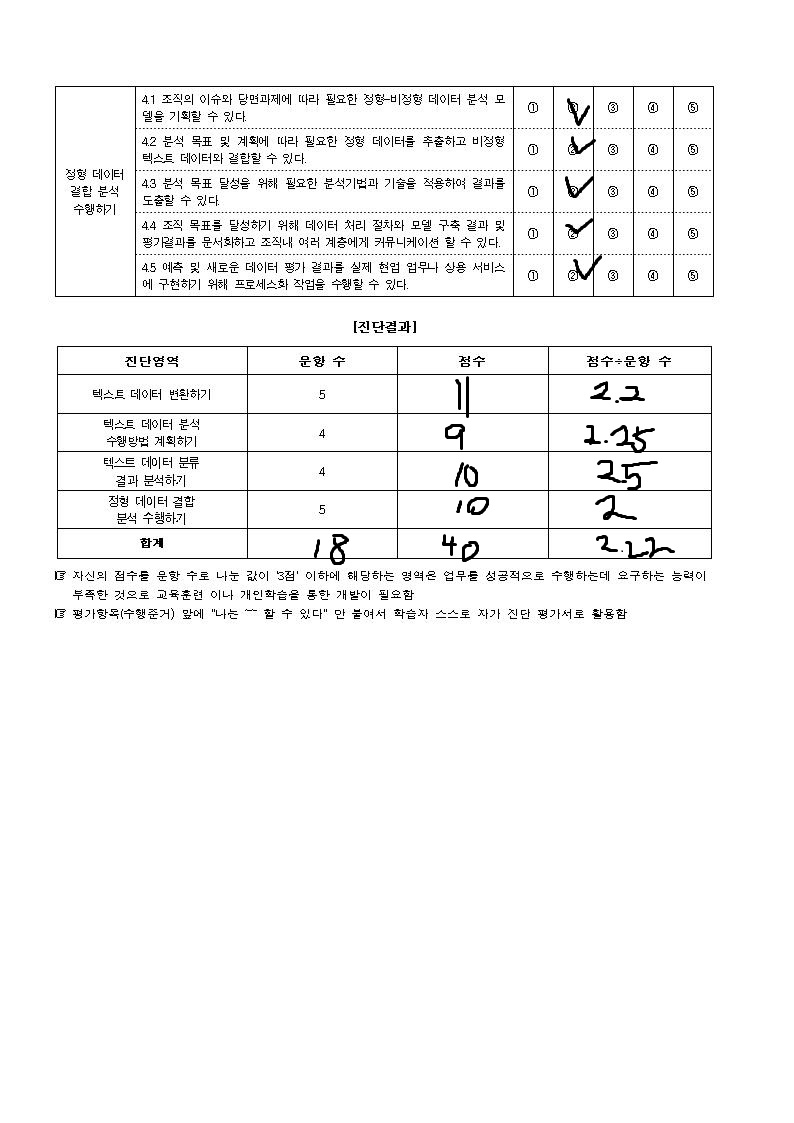 4.1 조직의 이슈와 당면과제에 따라 필요한 정형-비정형 데이터 분석 모
델을 기획할 수 있다.
① ③ ④ ⑤
4.2 분석 목표 및 계획에 따라 필요한 정형 데이터를 추출하고 비정형
텍스트 데이터와 결합할 수 있다.
① ② ③ ④ ⑤
정형 데이터
결합 분석
수행하기
4.3 분석 목표 달성을 위해 필요한 분석기법과 기술을 적용하여 결과를
도출할 수 있다.
① ② ③ ④ ⑤
4.4 조직 목표를 달성하기 위해 데이터 처리 절차와 모델 구축 결과 및
평가결과를 문서화하고 조직내 여러 계층에게 커뮤니케이션 할 수 있다.
① ② ③ ④ ⑤
4.5 예측 및 새로운 데이터 평가 결과를 실제 현업 업무나 상용 서비스
에 구현하기 위해 프로세스화 작업을 수행할 수 있다.
① ② ③ ④ ⑤
[진단결과]
진단영역 문항 수 점수 점수÷문항 수
텍스트 데이터 변환하기 5 11 2.2
텍스트 데이터 분석
수행방법 계획하기 4 9 2.25
텍스트 데이터 분류
결과 분석하기 4 10 2.5
정형 데이터 결합
분석 수행하기 5 10 2
합계 18 40 2.22
☞ 자신의 점수를 문항 수로 나눈 값이 '3점' 이하에 해당하는 영역은 업무를 성공적으로 수행하는데 요구하는 능력이
부족한 것으로 교육훈련 이나 개인학습을 통한 개발이 필요함
☞ 평가항목(수행준거) 앞에 "나는 ~~ 할 수 있다" 만 붙여서 학습자 스스로 자가 진단 평가서로 활용함